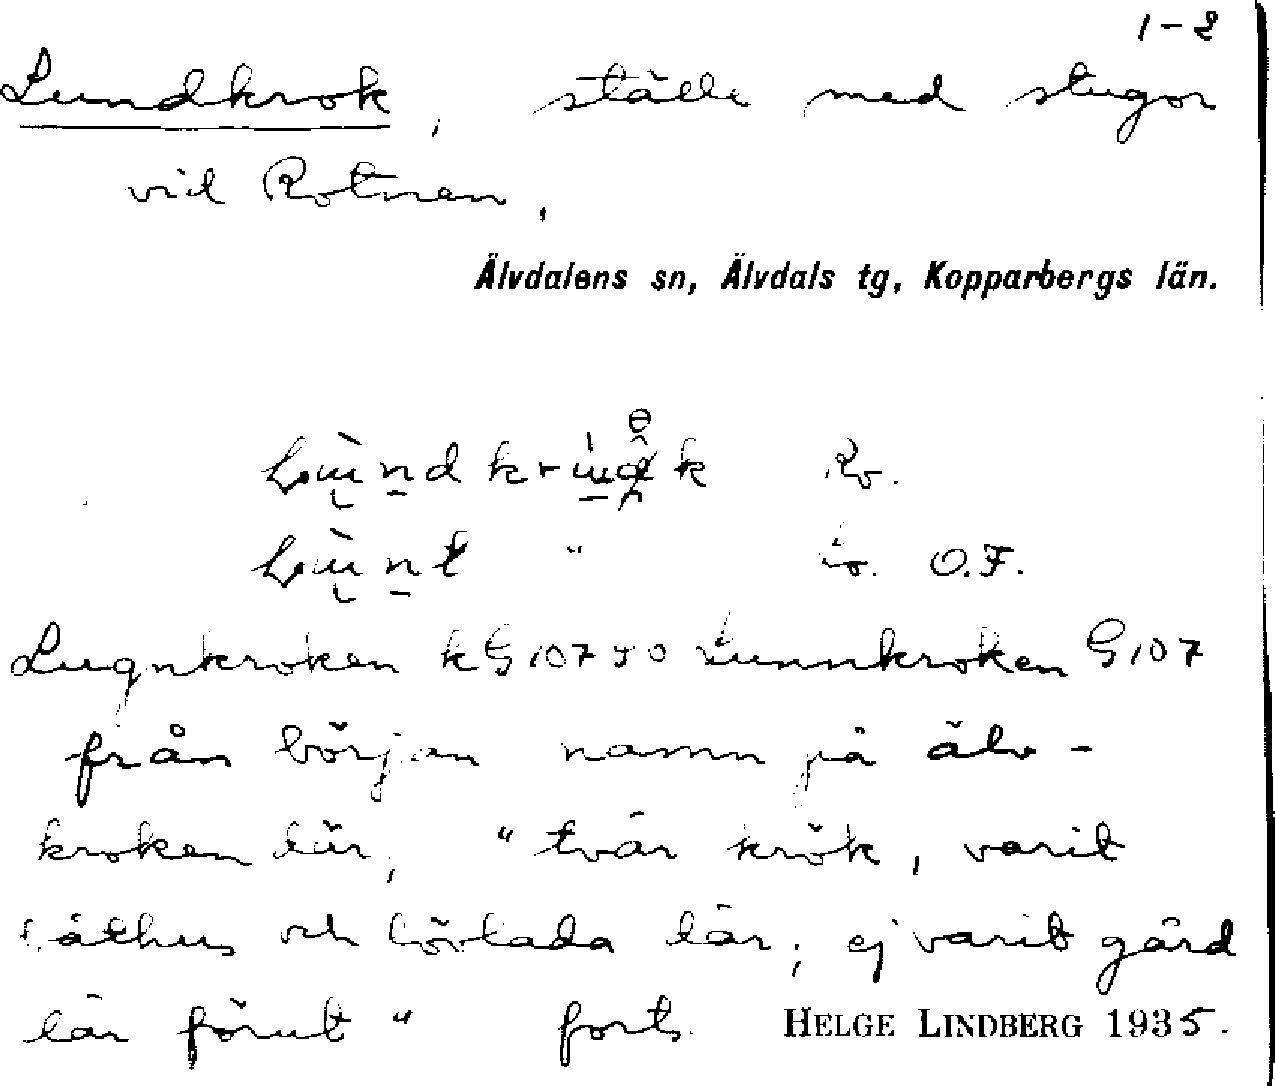 1-2
Lundkrok, ställe med stugor
vid Rotnen,
Älvdalens sn, Älvdals tg, Kopparbergs län.
Lugnkroken k G 107 Lunnkroken G 107
från början namn på älv-
kroken här, "tvär krök, varit
båthus och hövlada här, ej varit gård
här förut" forts. HELGE LINDBERG 1935.